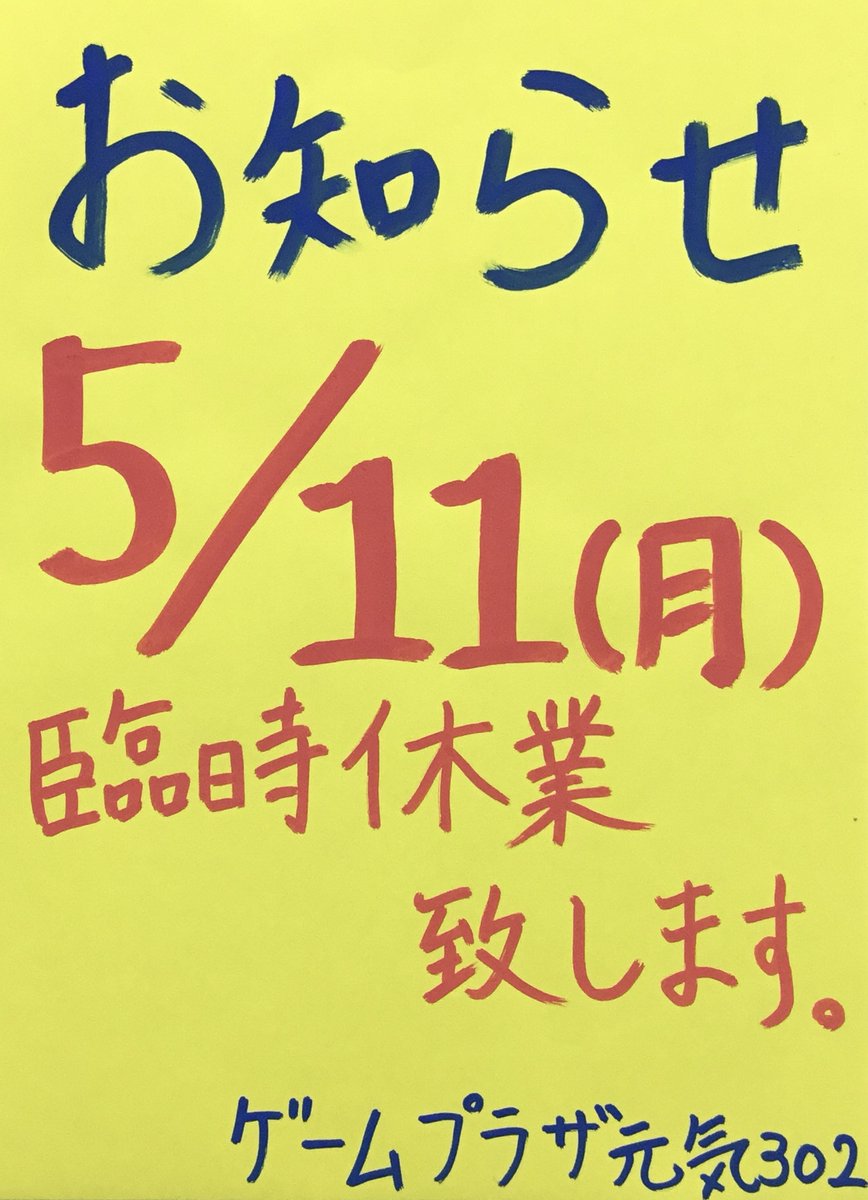 お知らせ
5/11(月)
臨時休業
致します。
ゲームプラザ元気302